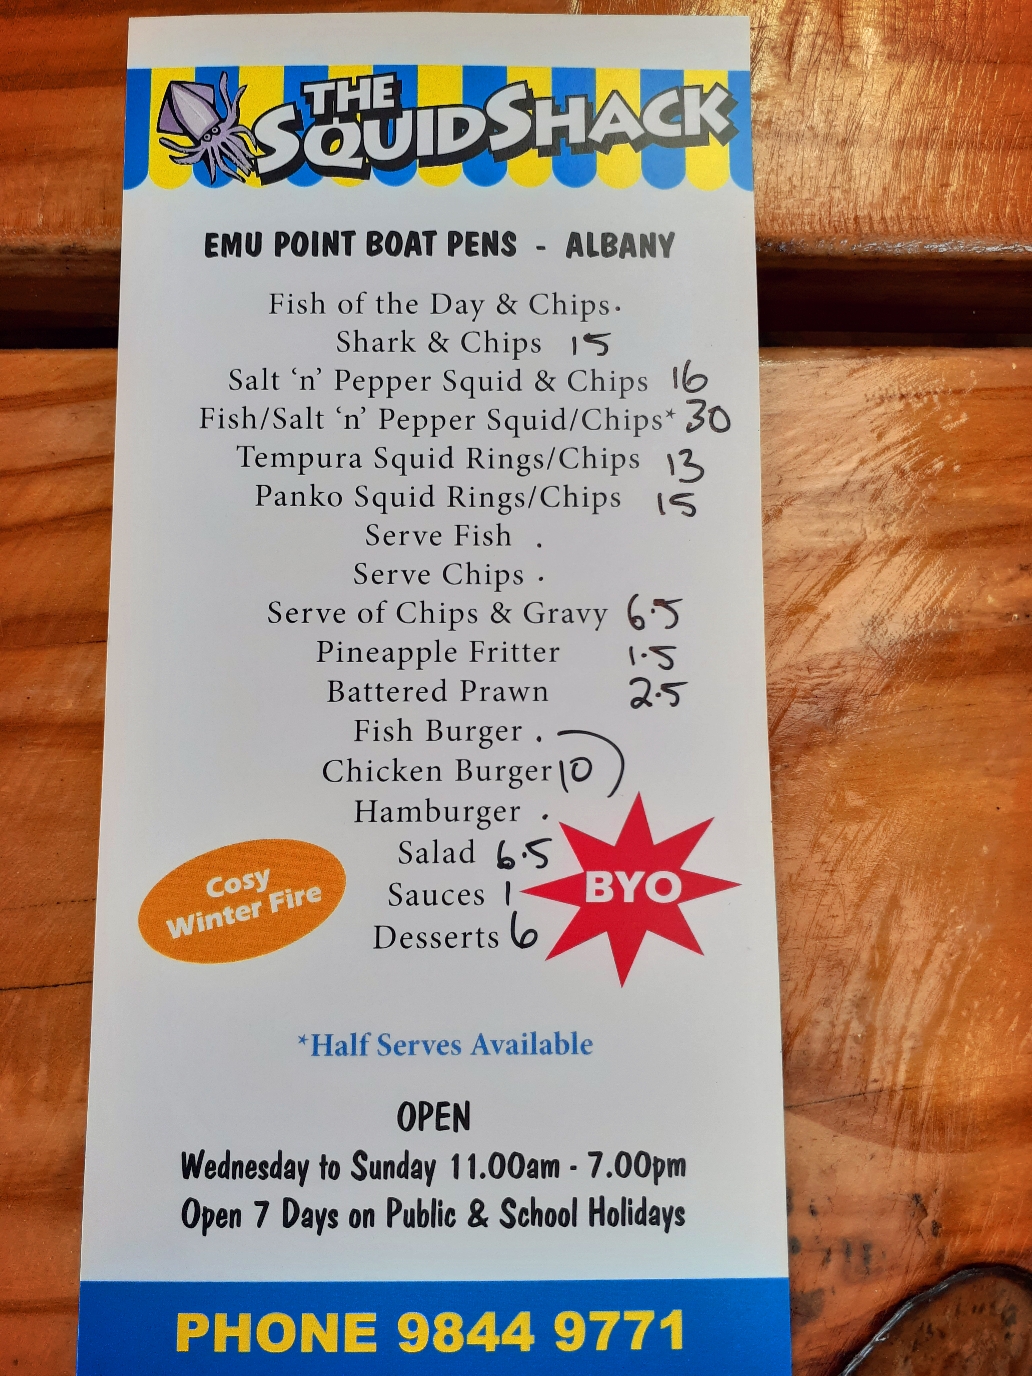 THE
SQUIDSHACK
EMU POINT BOAT PENS - ALBANY
Fish of the Day & Chips.
Shark & Chips 15
Salt ‘n’ Pepper Squid & Chips 16
Fish/Salt ‘n’ Pepper Squid/Chips* 30
Tempura Squid Rings/Chips 13
Panko Squid Rings/Chips 15
Serve Fish .
Serve Chips .
Serve of Chips & Gravy 6.5
Pineapple Fritter 1.5
Battered Prawn 2.5
Fish Burger .
Chicken Burger 10
Hamburger .
Salad 6.5
Sauces 1
Desserts 6
Cosy
Winter Fire
BYO
*Half Serves Available
OPEN
Wednesday to Sunday 11.00am - 7.00pm
Open 7 Days on Public & School Holidays
PHONE 9844 9771